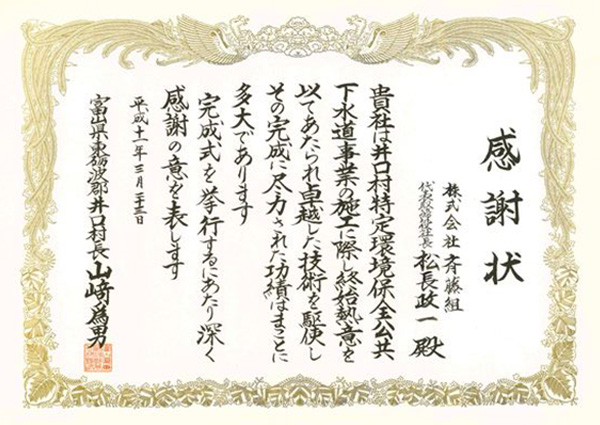 感謝状
株式会社斉藤組
代表取締役社長 松長政一殿
貴社は井口村特定環境保全公共
下水道事業の施工に際し終始熱意を
以てあたられ卓越した技術を駆使し
その完成に尽力された功績はまことに
多大であります
完成式を挙行するにあたり深く
感謝の意を表します
平成十一年三月二十三日
富山県東砺波郡井口村長 山﨑為男